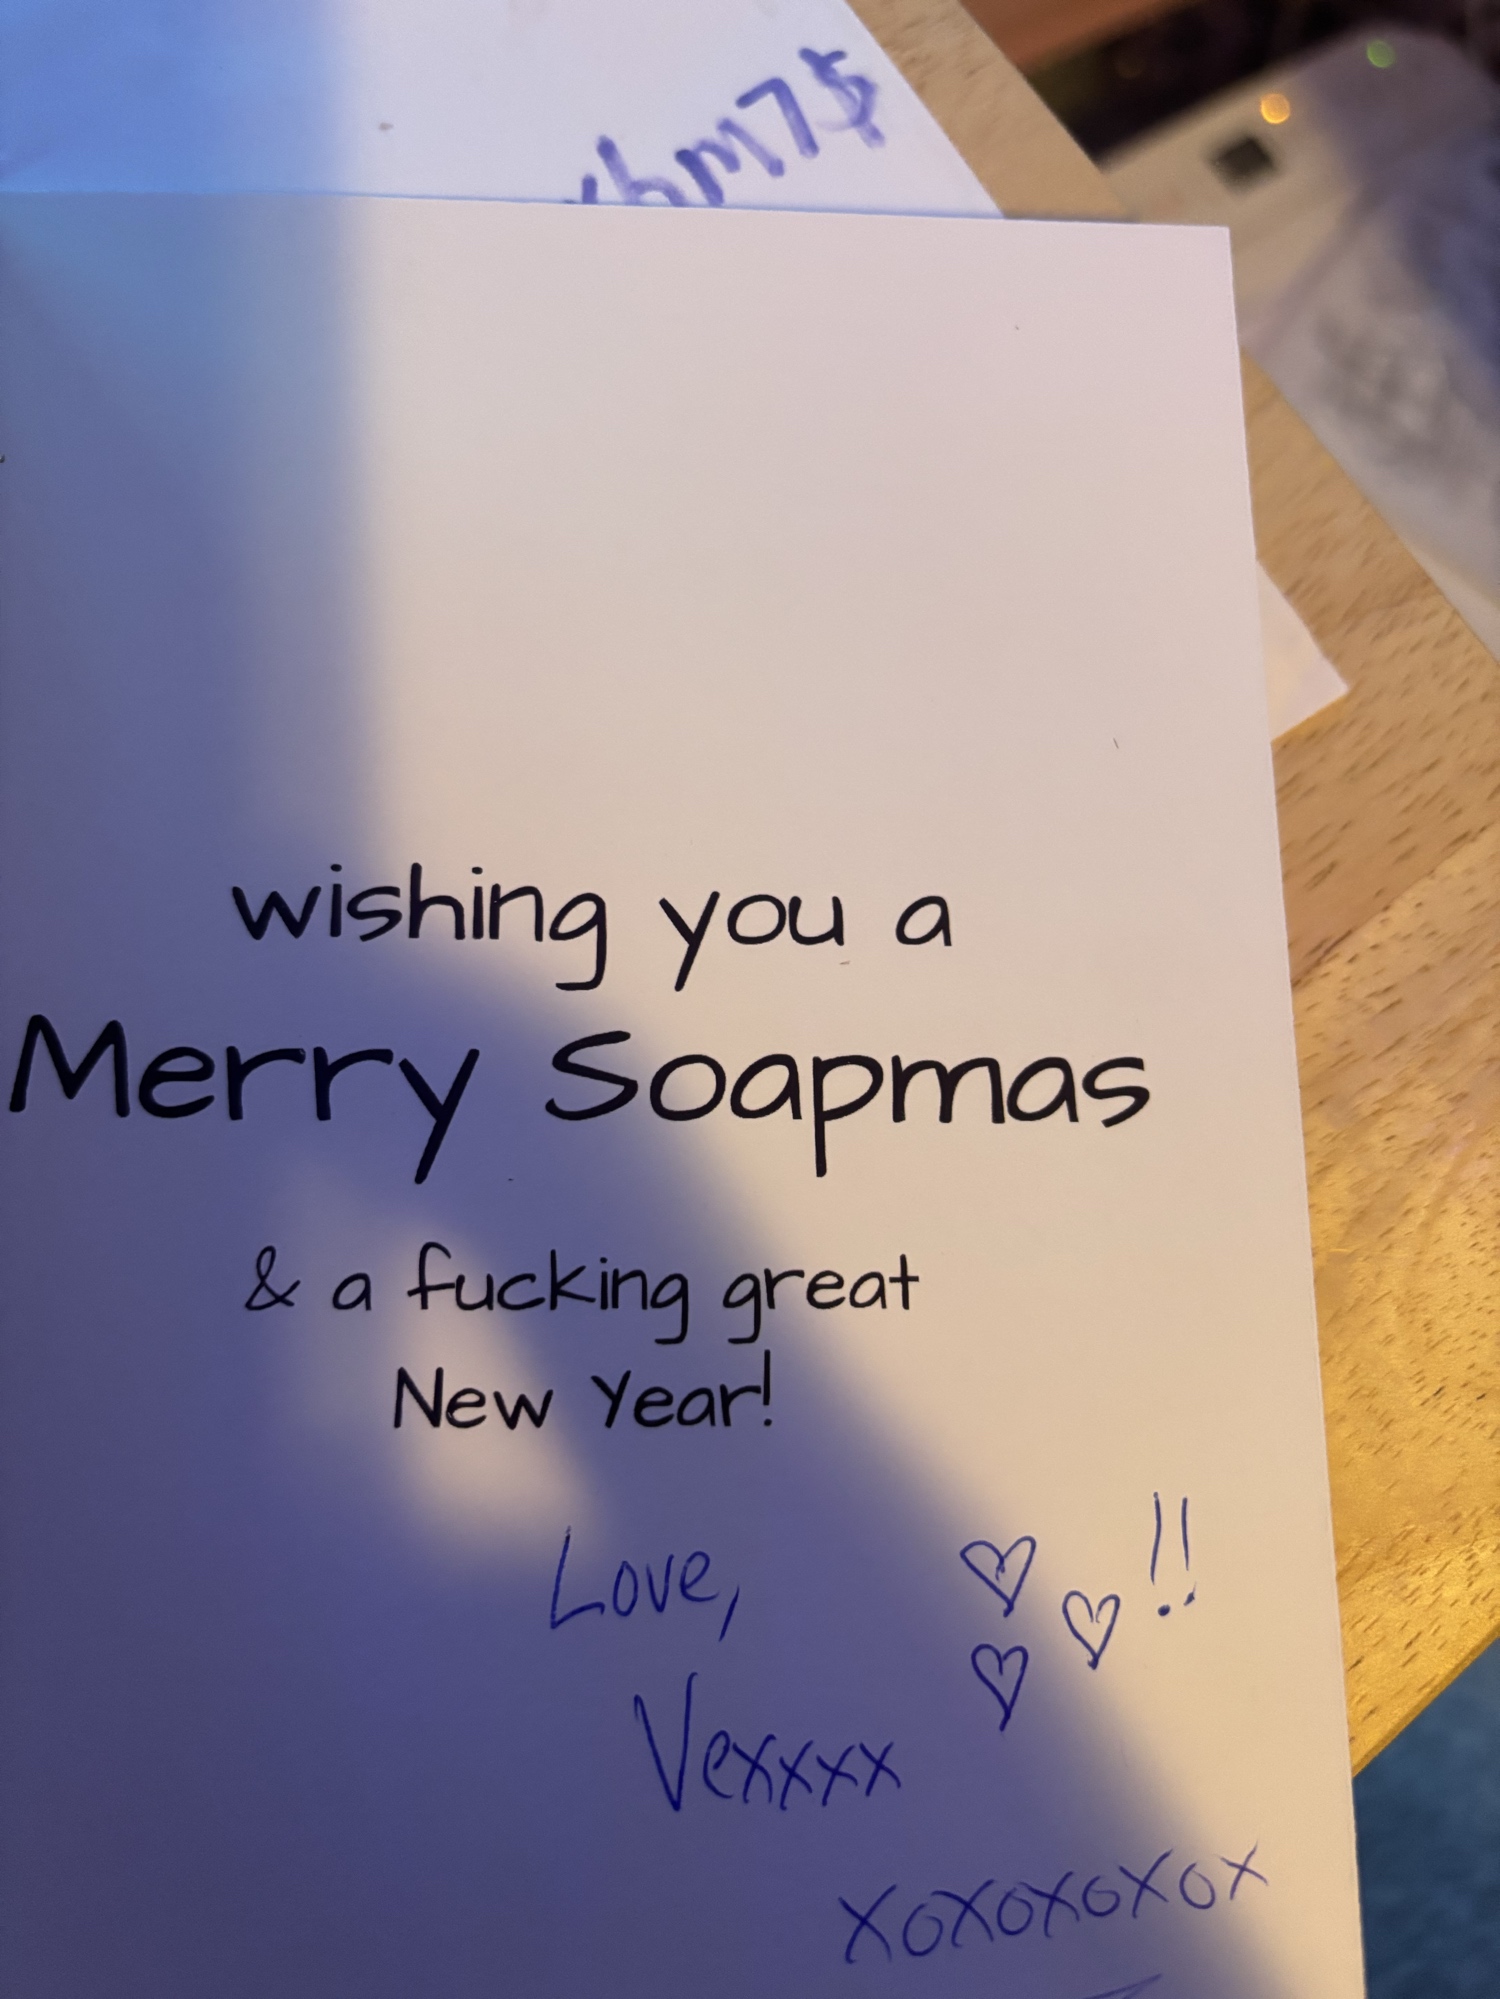 wishing you a
Merry Soapmas
& a fucking great
New Year!
Love,
!!
Vexxxx
xoxoxoxox